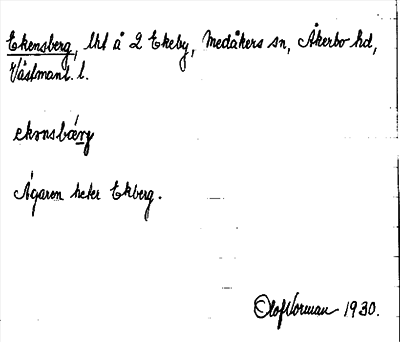 Ekensberg, lht å 2 Ekeby, Medåkers sn, Åkerbo hd,
Västmanl. l.
ekǝnsbærj
Ägaren heter Ekberg.
Olof Norman 1930.